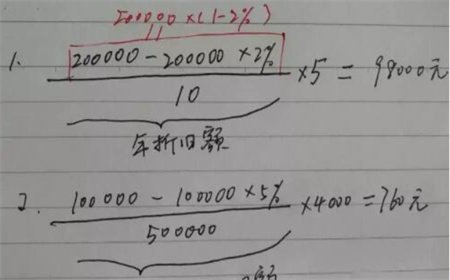 200000×(1-2%)
1. (200000-200000×2%)/10 ×5=98000元
年折旧额
2. (100000-100000×5%)/500000 ×4000=760元
额